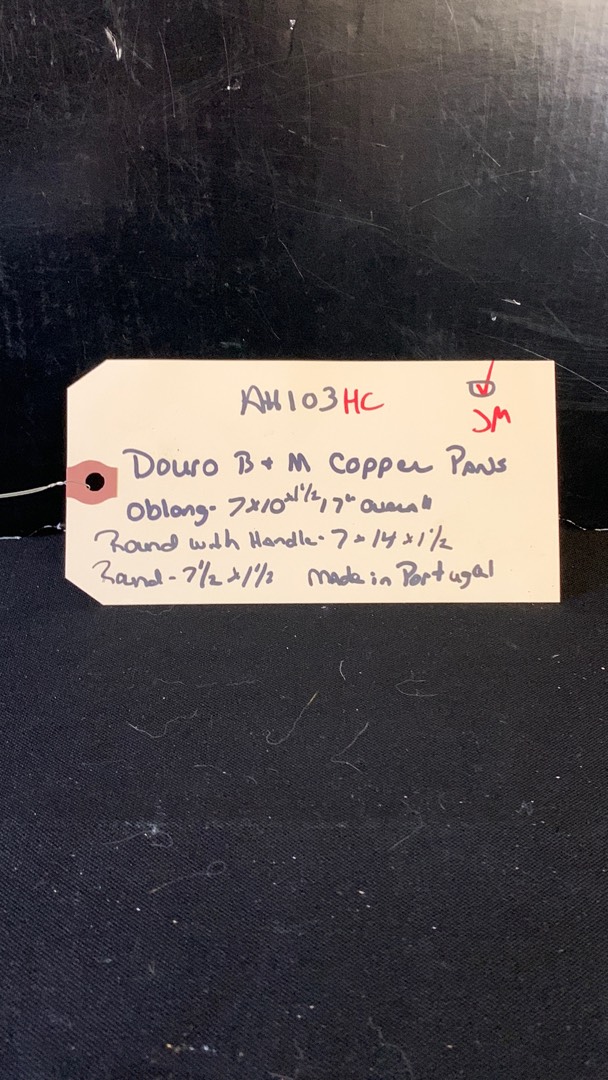 AH103HC
JM
Douro B + M Copper Pans
Oblong- 7x10x1 1/2 17" overall
Round with Handle- 7 x 14 x 1 1/2
Round - 7 1/2 x 1 1/2 Made in Portugal